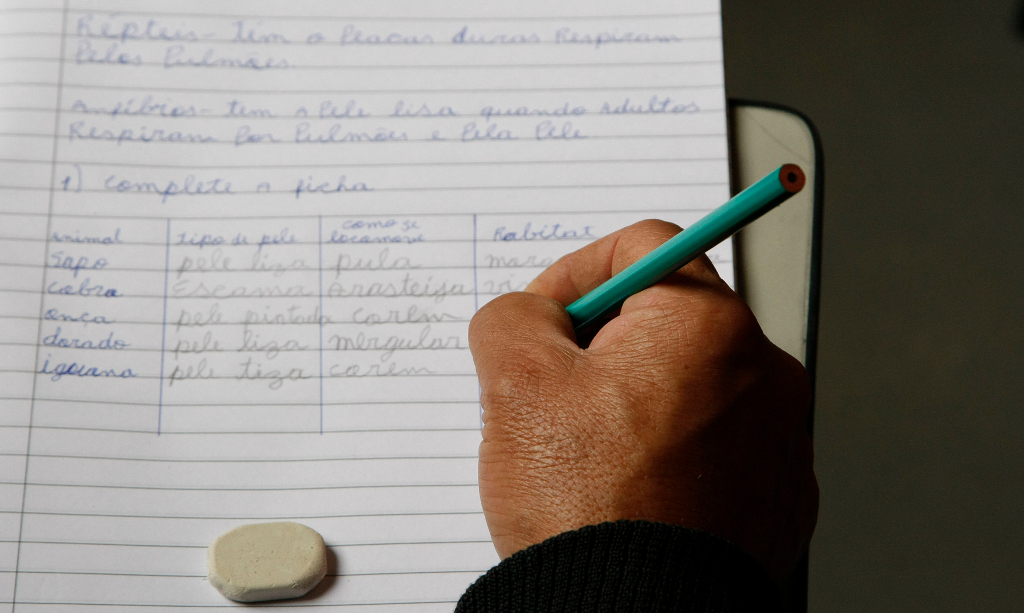 Répteis- têm o Placas duras Respiram
Pelos Pulmões
Anfíbios- tem a Pele lisa quando Adultos
Respiram Por Pulmões e Pela Pele
1) complete a ficha
animal tipo de pele como se locamove Habitat
Sapo pele liza pula
cobra Escama Arasteija
onça pele pintada corem
dorado pele liza mergular
iguana pele liza corem